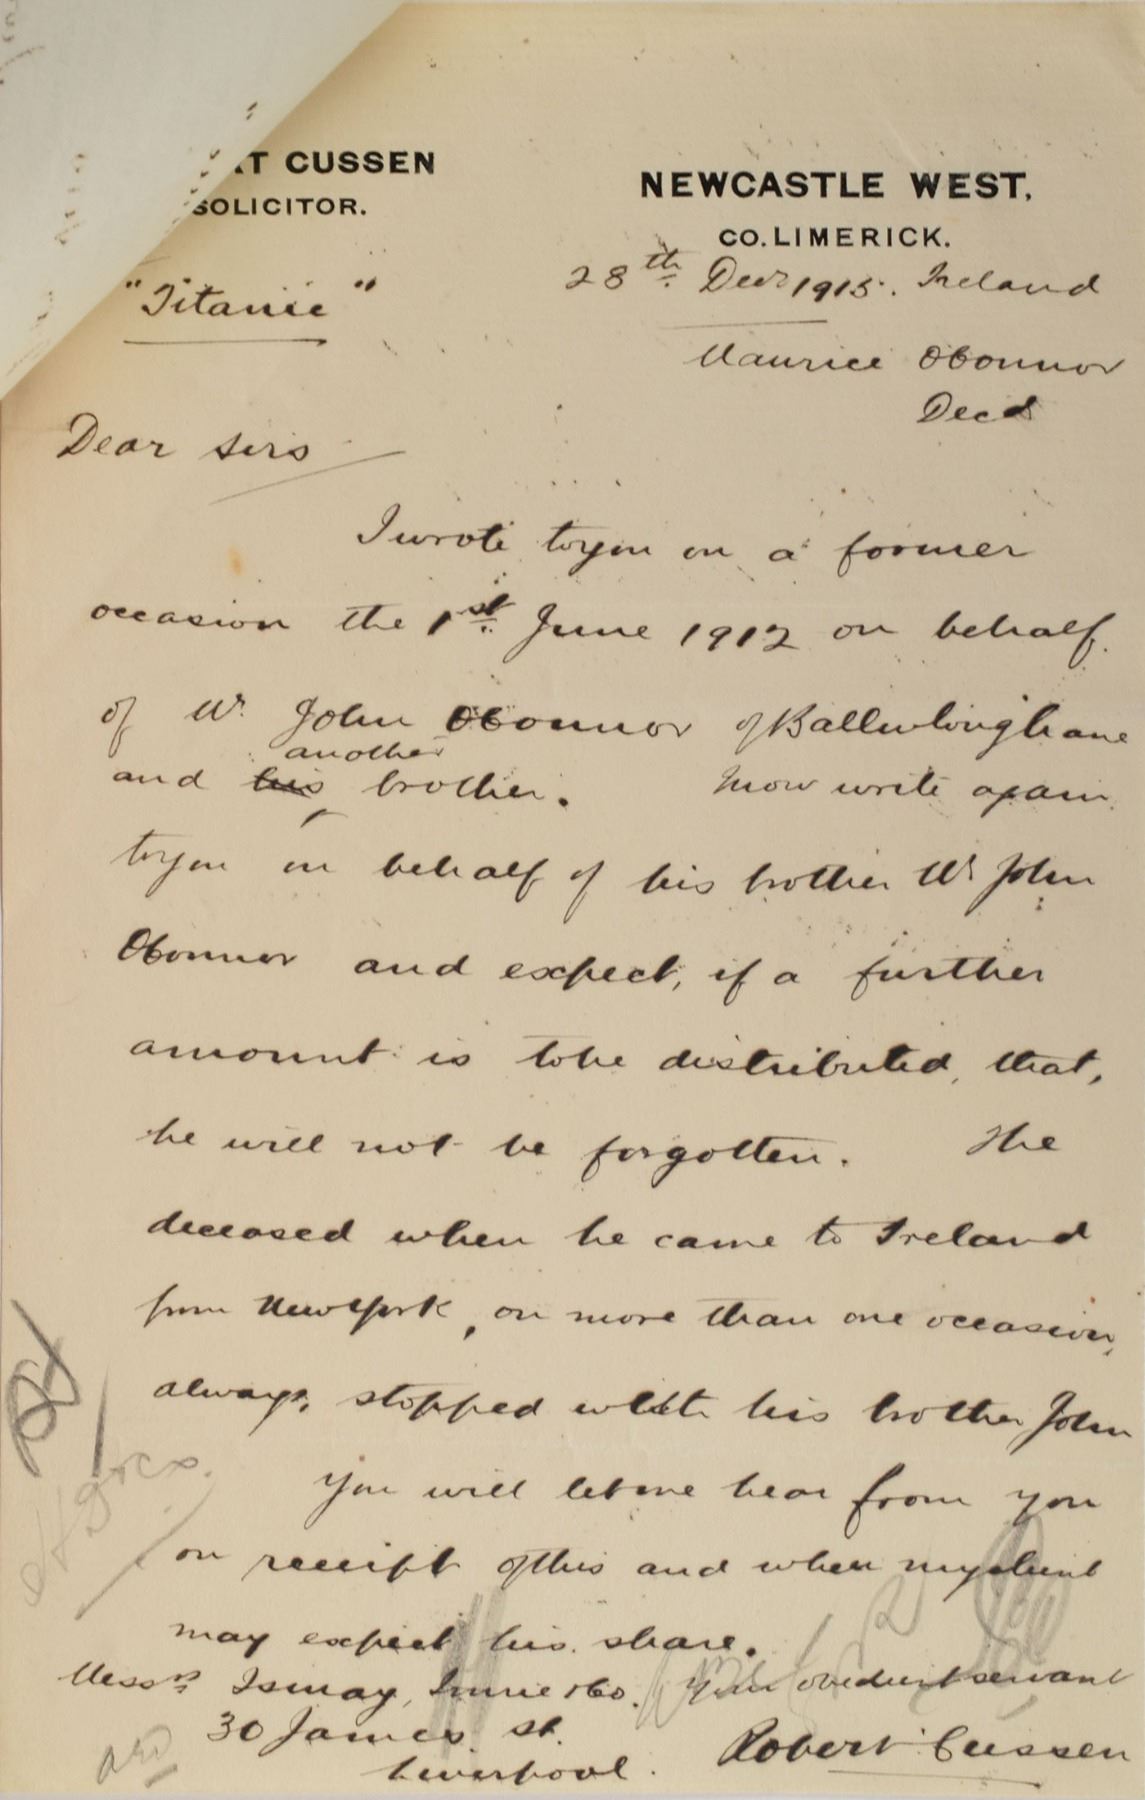 RT CUSSEN
SOLICITOR.
NEWCASTLE WEST,
CO. LIMERICK.
28th Decr 1915. Ireland
"Titanic"
Maurice OConnor
Decd
Dear Sirs
I wrote to you on a former
occasion the 1st June 1912 on behalf
of Mr. John OConnor of
another
and his brother. I now write again
to you on behalf of his brother Mr John
OConnor and expect, if a further
amount is to be distributed, that,
he will not be forgotten. The
deceased when he came to Ireland
from New York, on more than one occasion,
always, stopped with his brother John
You will let me hear from you
on receipt of this and when my client
may expect his share.
Messrs Ismay, Imrie & Co. Your obedient servant
30 James St. Robert Cussen
Liverpool.